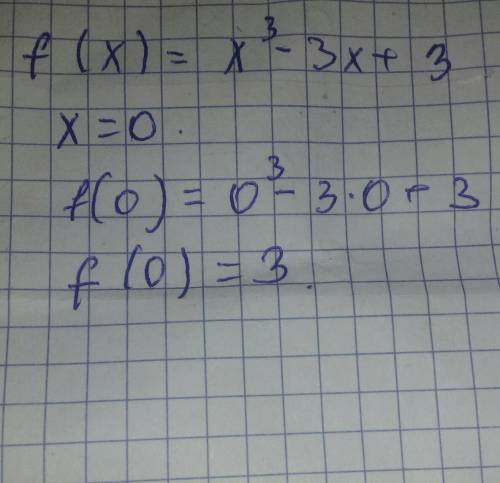 f(x) = x³ - 3x + 3
x = 0.
f(0) = 0³ - 3·0 + 3
f(0) = 3.